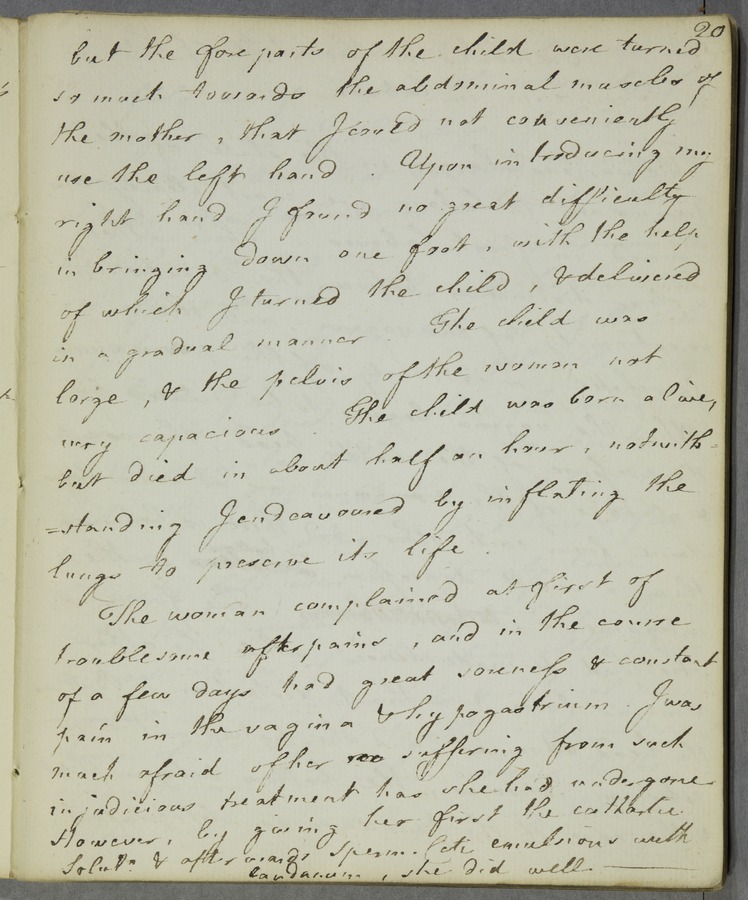 20
but the fore parts of the child were turned
so much towards the abdominal muscles of
the mother, that I could not conveniently
use the left hand. Upon introducing my
right hand I found no great difficulty
in bringing down one foot, with the help
of which I turned the child, & delivered
in a gradual manner. The child was
large, & the pelvis of the woman not
very capacious. The child was born alive,
but died in about half an hour, notwith=
=standing I endeavoured by inflating the
lungs to preserve its life.
The woman complained at first of
troublesome afterpains, and in the course
of a few days had great soreness & constant
pain in the vagina & hypogastrium. I was
much afraid of her suffering from such
injudicious treatment has she had undergone
However, by giving her first the cathartic
Solutn. & afterwards sperm. Ceti emulsions with
laudanum, she did well.